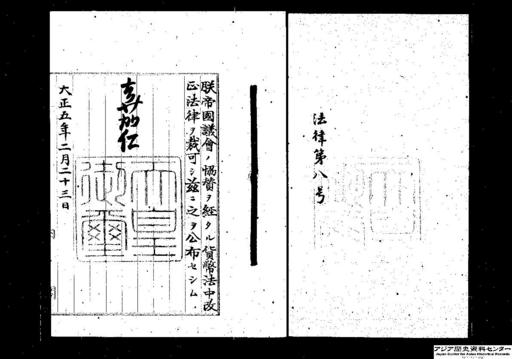 法律第八号
朕帝國議會ノ協賛ヲ経タル貨幣法中改
正法律ヲ裁可シ茲ニ之ヲ公布セシム
嘉仁
天皇
御璽
大正五年二月二十三日
内
アジア歴史資料センター
Japan Center for Asian Historical Records